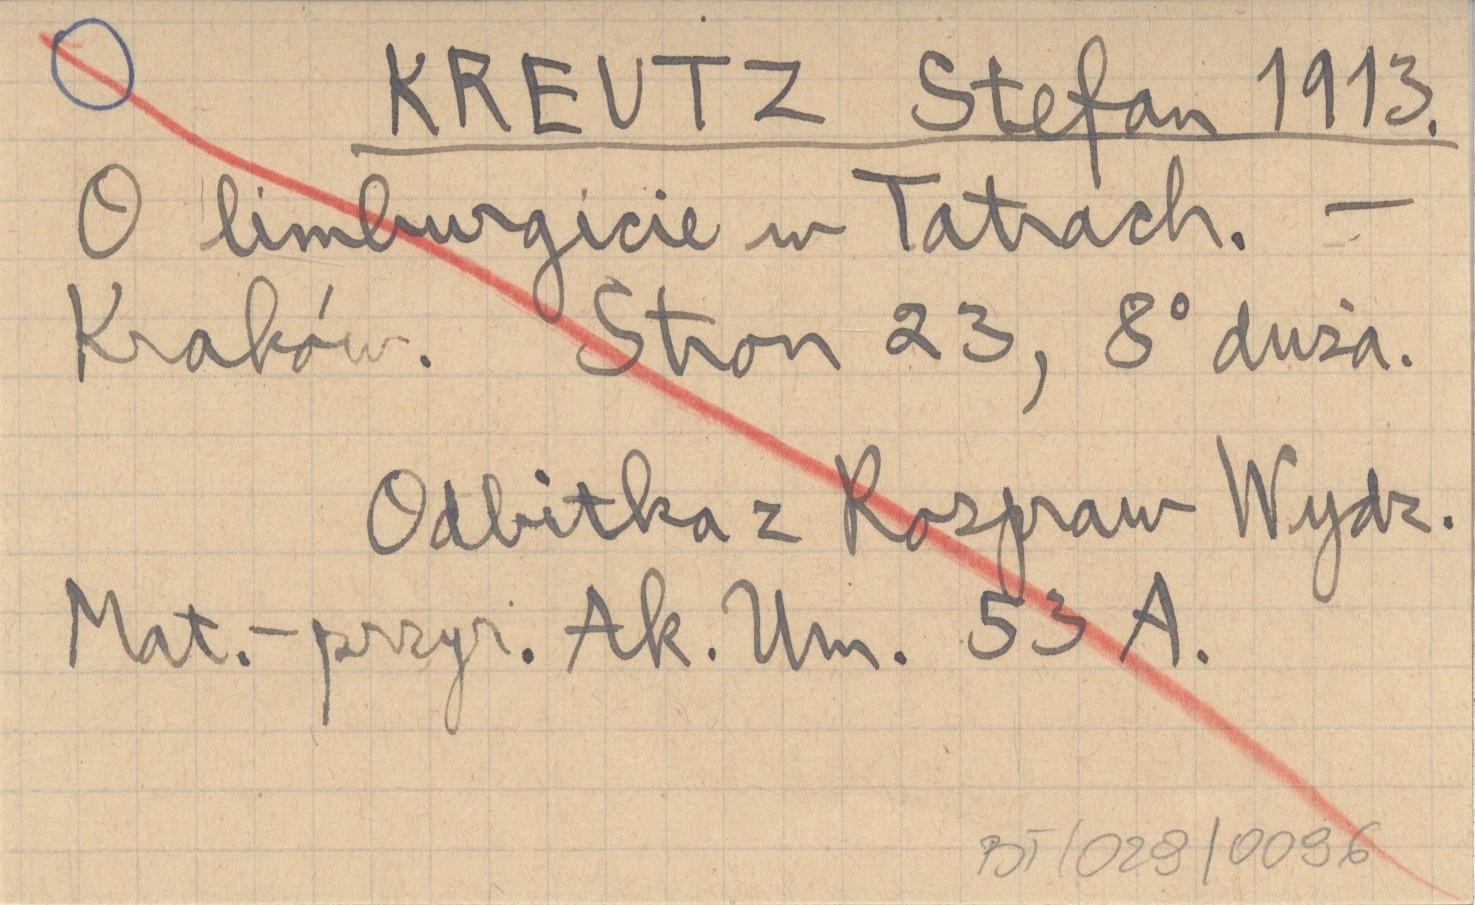 KREUTZ Stefan 1913.
O limburgicie w Tatrach. —
Kraków. Stron 23, 8° duża.
Odbitka z Rozpraw Wydz.
Mat.-przyr. Ak. Um. 53 A.
BT/028/0096